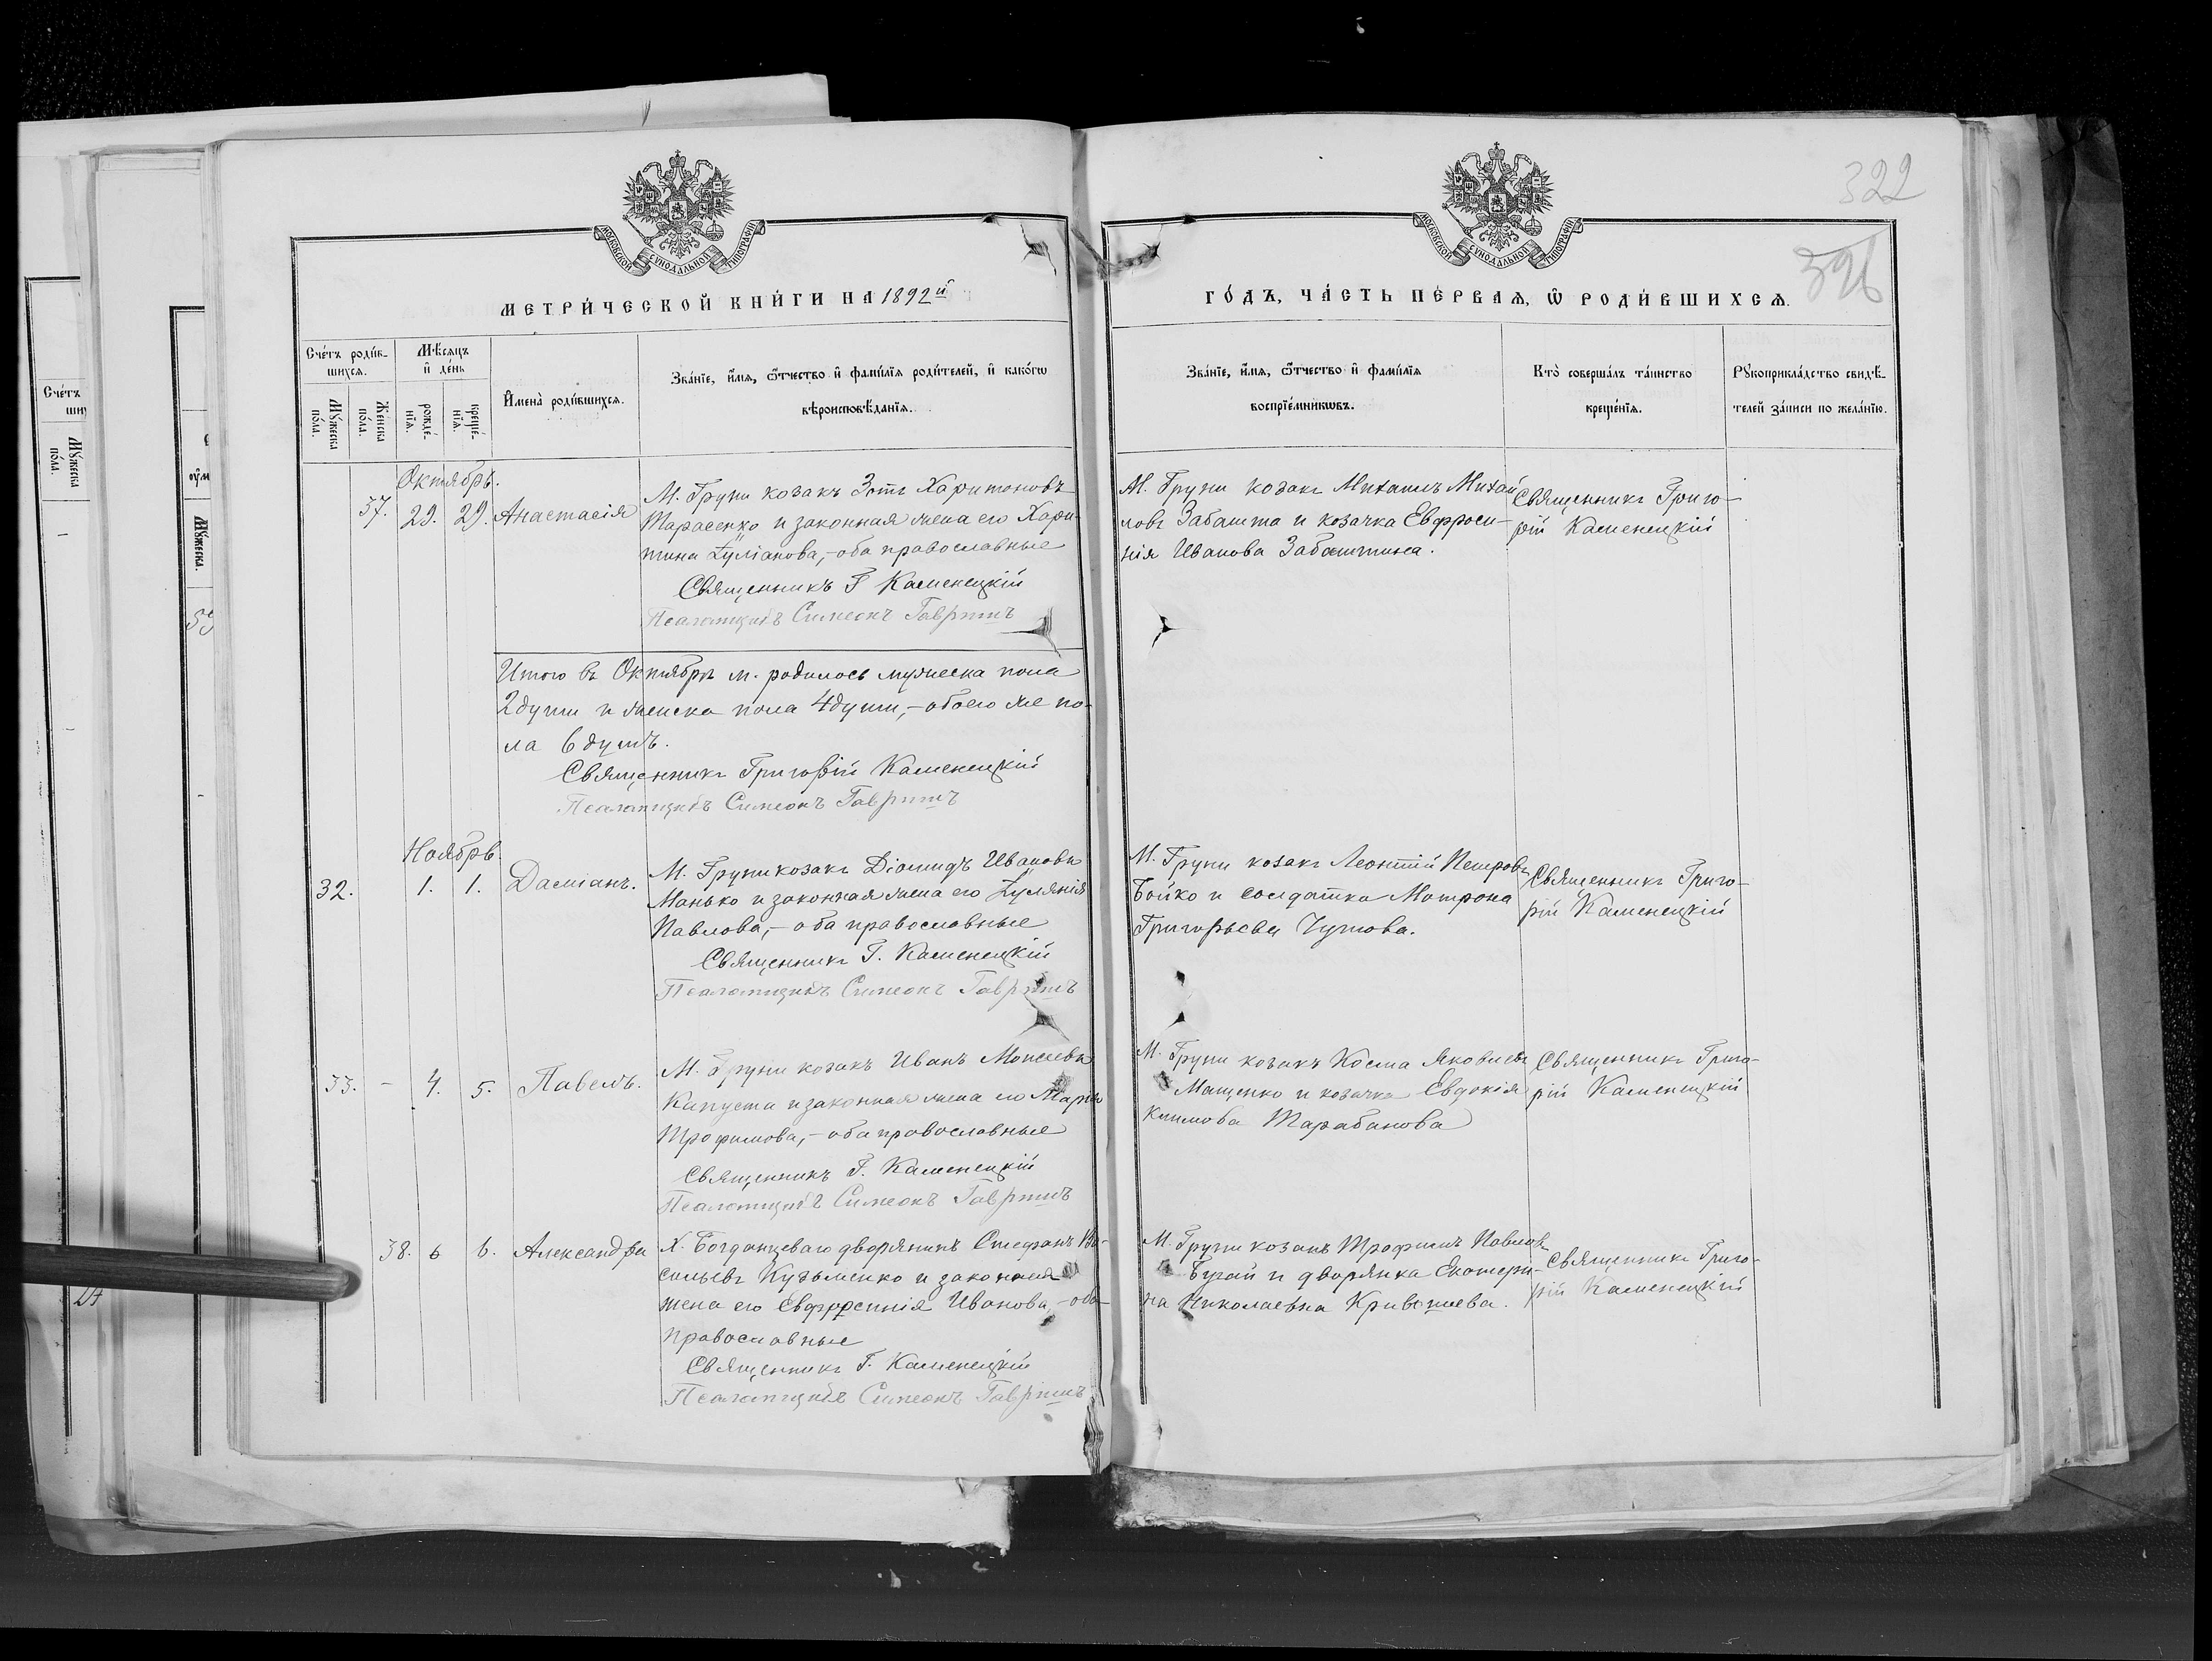 322
326
МОСКОВСКОЙ СѴНОДАЛЬНОЙ ТИПОГРАФІИ
МОСКОВСКОЙ СѴНОДАЛЬНОЙ ТИПОГРАФІИ
МЕТРИ́ЧЕСКОЙ КНИ́ГИ НА 1892й
ГО́ДЪ, ЧА́СТЬ ПЕ́РВАЯ, Ѿ РОДИ́ВШИХСЯ.
Сче́тъ роди́в-
шихся.
Мѣ́сяцъ
и҆ де́нь
Мꙋ́жеска
по́ла.
Же́нска
по́ла.
рожде́-
нїѧ.
креще́-
нїѧ.
И҆мена̀ роди́вшихся.
Зва́нїе, и҆́мѧ, ѻ҆́тчество и҆ фами́лїѧ роди́телей, и҆ како́гѡ
вѣроисповѣ́данїѧ.
Зва́нїе, и҆́мѧ, ѻ҆́тчество и҆ фами́лїѧ
воспрїе́мникѡвъ.
Кто̀ соверша́лъ та́инство
креще́нїѧ.
Рꙋкоприкла́дство свидѣ́-
телей за́писи по жела́нїю.
Октябрь.
37. 29. 29. Анастасія
М. Груни козакъ Зотъ Харитоновъ
Тарасенко и законная жена его Хари-
тина Іуліанова,-оба православные
Священникъ Г Каменецкій
Псаломщикъ Симеонъ Гавришъ
М. Груни козакъ Михаилъ Михай
ловъ Забашта и козачка Евфроси-
нія Иванова Забаштина.
Священникъ Григо-
рій Каменецкій
Итого въ Октябрѣ м. родилось мужеска пола
2 души и женска пола 4 души,-обоего же по-
ла 6 душъ.
Священникъ Григорій Каменецкій
Псаломщикъ Симеонъ Гавришъ
Ноябрь.
32. 1. 1. Даміанъ.
М. Груни козакъ Діомидъ Ивановъ
Манько и законная жена его Іулянія
Павлова,-оба православные
Священникъ Г. Каменецкій
Псаломщикъ Симеонъ Гавришъ
М. Груни козакъ Леонтій Петровъ
Бойко и солдатка Матрона
Григорьева Чутова.
Священникъ Григо-
рій Каменецкій
33. - 4. 5. Павелъ.
М. Груни козакъ Иванъ Моисеевъ
Капуста и законная жена его Марія
Трофимова,-оба православные
Священникъ Г. Каменецкій
Псаломщикъ Симеонъ Гавришъ
М. Груни козакъ Косма Яковлевъ
Мащенко и козачка Евдокія
Климова Тарабанова
Священникъ Григо-
рій Каменецкій
38. 6 6. Александра
Х. Богданцеваго дворянинъ Стефанъ Ва-
сильевъ Кузьменко и законная
жена его Евфросинія Иванова,-оба
православные
Священникъ Г. Каменецкій
Псаломщикъ Симеонъ Гавришъ
М. Груни козакъ Трофимъ Павлов
Бугай и дворянка Екатери-
на Николаевна Кривошеева.
Священникъ Григо-
рій Каменецкій